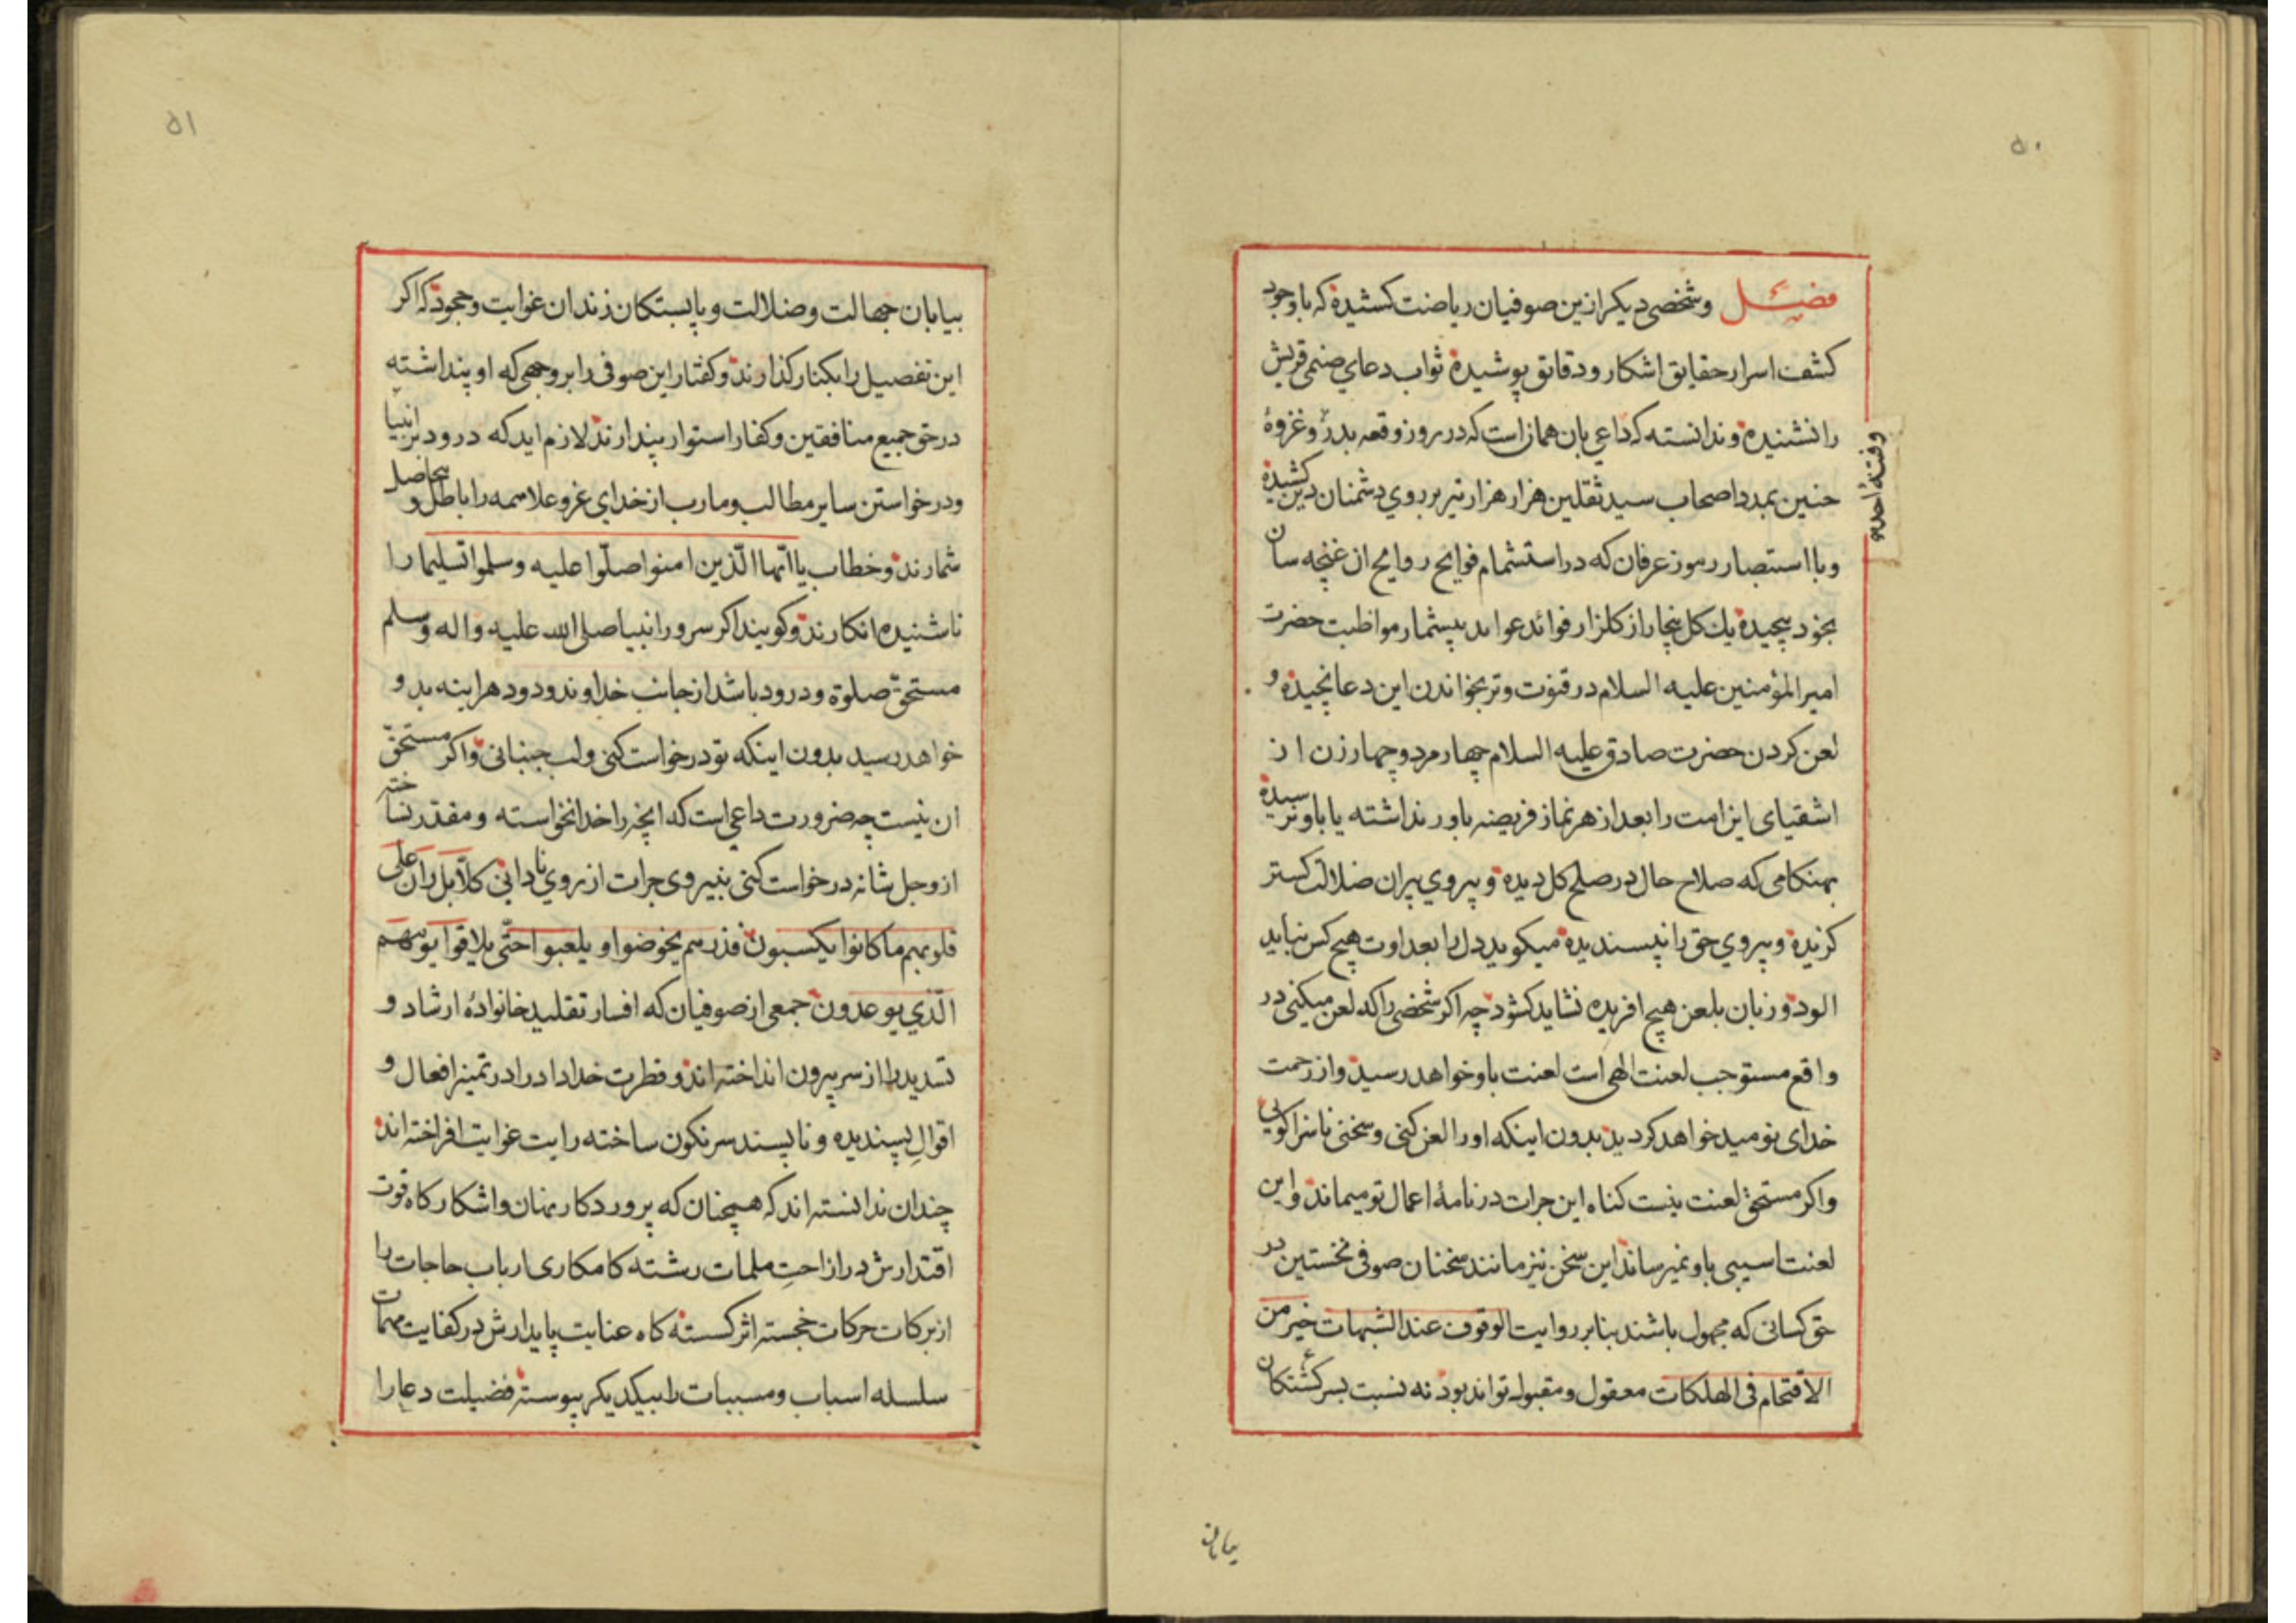 ۵۰
فصل وشخصی دیکر ازین صوفیان ریاضت کشیده که باوجود
کشف اسرار حقایق اشکار ودقایق پوشیده ثواب دعاي صنمی قریش
را نشنیده وندانسته که داعی بان همانراست که در روز وقعه بدر وغزوهٔ
وفتنهٔ احد و
حنین بمدد اصحاب سید ثقلین هزار هزار تیر بر روي دشمنان دین کشیده
وبا استبصار رموز عرفان که در استشمام فوایح روایح ان غنچه سان
بخود پیچیده یك کل بیخار از کلزار فوائد عواید بیشمار مواظبت حضرت
امیر المؤمنین علیه السلام در قنوت وتر بخواندن این دعا نچیده و
لعن کردن حضرت صادق علیه السلام چهار مرد وچهار زن از
اشقیای این امت را بعد از هر نماز فریضه باور نداشته یا باو نرسیده
بهنکامی که صلاح حال در صلح کل دیده وپیروي پیران ضلالت کستر
کزیده وپیروي حق را نپسندیده میکوید دل را بعداوت هیچ کس نباید
الود و زبان بلعن هیچ افریده نشاید کشود چه اکر شخصی را که لعن میکنی در
واقع مستوجب لعنت الهی است لعنت باو خواهد رسید واز رحمت
خدای نومید خواهد کردید بدون اینکه اورا لعن کنی وسخنی ناسزا کویی
واکر مستحق لعنت نیست کناه این جرات در نامهٔ اعمال تو میماند واین
لعنت اسیبی باو نمیرساند این سخن نیز مانند سخنان صوفی نخستین در
حق کسانی که مجهول باشند بنابر روایت الوقوف عند الشبهات خیر من
الاقتحام فی الهلکات معقول ومقبول تواند بود نه نسبت بسرکشتکان
بیابان
۵۱
بیابان جهالت وضلالت وپابستکان زندان غوایت وجحود که اکر
این تفصیل را بکنار کذارند وکفتار این صوفی را بر وجهی که او پنداشته
در حق جمیع منافقین وکفار استوار پندارند لازم اید که درود بر انبیا
ودرخواستن سایر مطالب ومارب از خداي عز وعلا سمه را باطل و بیحاصل
شمارند وخطاب یا ایها الذین امنوا صلّوا علیه وسلموا تسلیما را
ناشنیده انکارند وکویند اکر سرور انبیا صلی الله علیه واله وسلم
مستحق صلوة ودرود باشد از جانب خداوند ودود هراینه بدو
خواهد رسید بدون اینکه تو درخواست کنی ولب جنبانی واکر مستحق
ان نیست چه ضرورت داعی است که انچه را خدا نخواسته ومقدر نساخته
ازو جل شانه درخواست کنی بنیروی جرات از روي نادانی کلّا بل ران علی
قلوبهم ما کانوا یکسبون فذرهم یخوضوا و یلعبوا حتّی یلاقوا یومهم
الّذي یوعدون جمعی از صوفیان که افسار تقلید خانوادهٔ ارشاد و
تسدید را از سر بیرون انداخته اند وفطرت خداداد را در تمیز افعال و
اقوال پسندیده و ناپسند سرنکون ساخته رایت غوایت افراخته اند
چندان ندانسته اند که همچنان که پروردکار نهان واشکار کاه قوت
اقتدارش در ازاحت ملمات رشته کامکاری ارباب حاجات را
از برکات حرکات خجسته اثر کسسته کاه عنایت پایدارش در کفایت مهمات
سلسله اسباب ومسببات را بیکدیکر پیوسته فضیلت دعا را